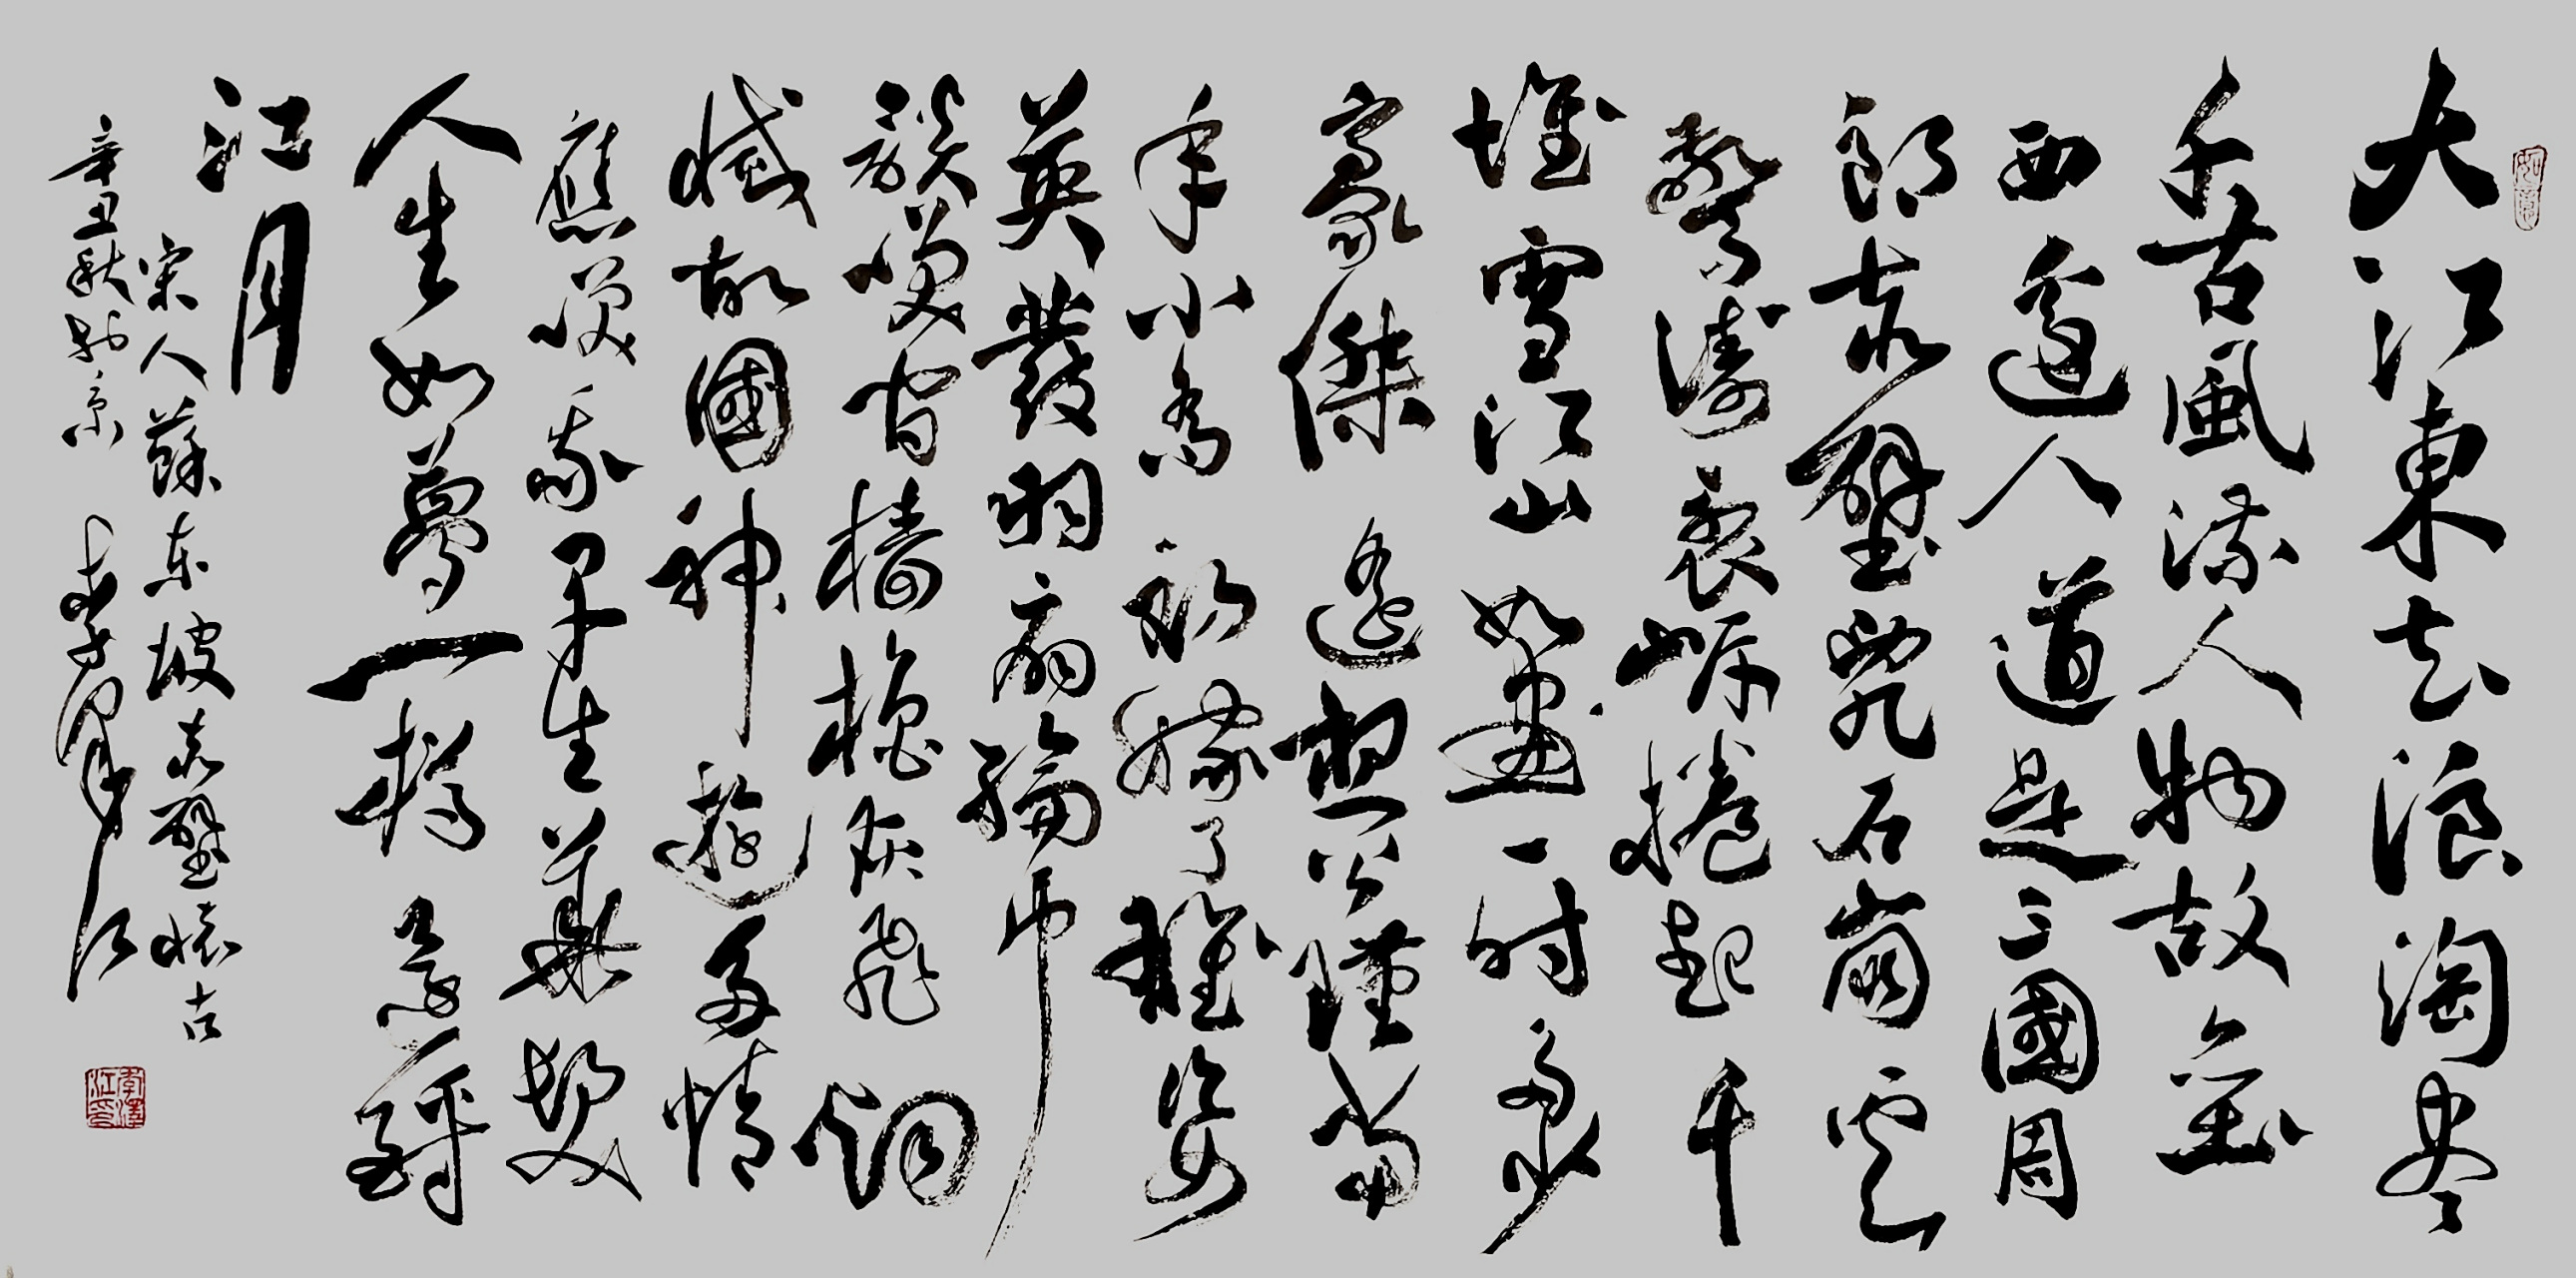 如意
大江東去浪淘尽
千古風流人物故壘
西邊人道是三國周
郎赤壁亂石崩雲
驚濤裂岸捲起千
堆雪江山如畫一時多少
豪傑遙想公瑾當
年小喬初嫁了雄姿
英發羽扇綸巾
談笑間檣櫓灰飛烟
滅故國神遊多情
應笑我早生華髮
人生如夢一樽還酹
江月
宋人蘇東坡赤壁懷古
辛丑秋於京李澤江
李澤江印